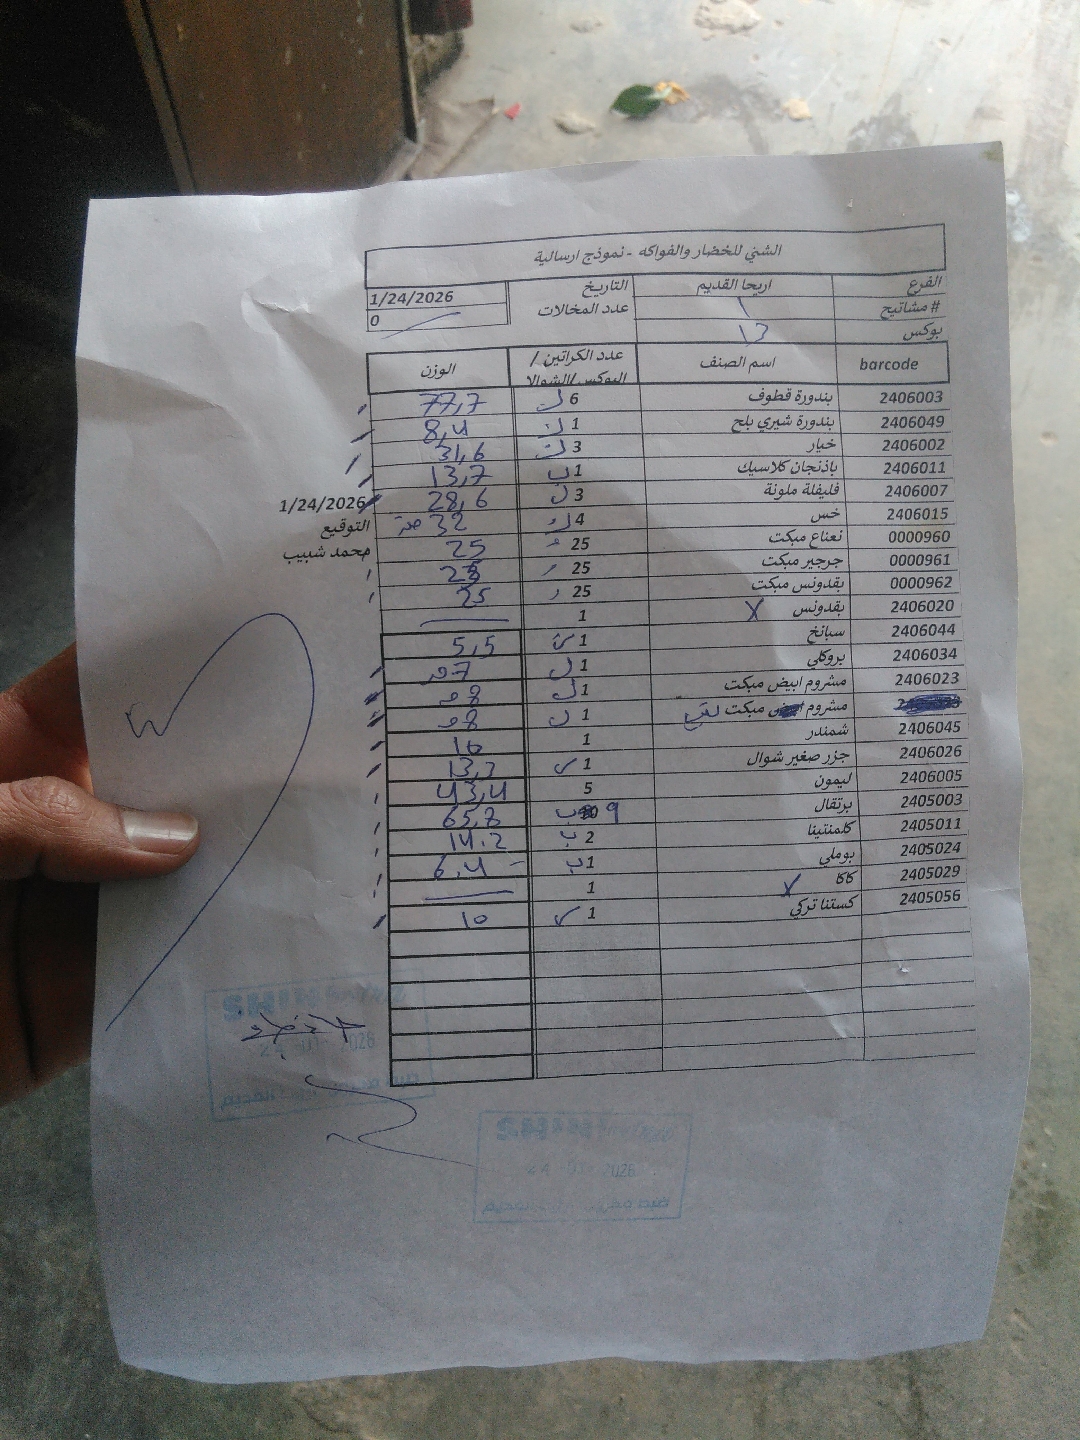 الشني للخضار والفواكه - نموذج ارسالية
الفرع اريحا القديم التاريخ 1/24/2026
# مشاتيح 1 عدد المخالات 0
بوكس 13
barcode اسم الصنف عدد الكراتين / البوكس/الشوالا الوزن
2406003 بندورة قطوف 6 77,7
2406049 بندورة شيري بلح 1 8,4
2406002 خيار 3 31,6
2406011 باذنجان كلاسيك 1 ب 13,7
2406007 فليفلة ملونة 3 28,6 1/24/2026
2406015 خس 4 32 التوقيع
0000960 نعناع مبكت 25 25 محمد شبيب
0000961 جرجير مبكت 25
0000962 بقدونس مبكت 25 25
2406020 بقدونس X 1
2406044 سبانخ 1 5,5
2406034 بروكلي 1 7
2406023 مشروم ابيض مبكت 1 8
مشروم مبكت 1 8
2406045 شمندر 1 16
2406026 جزر صغير شوال 1 13,7
2406005 ليمون 5 43,4
2405003 برتقال 9 ب 65,8
2405011 كلمنتينا 2 ب 14.2
2405024 بوملي 1 ب 6,4
2405029 كاكا X 1
2405056 كستنا تركي 1 10
24 01 2026
24 01 2026